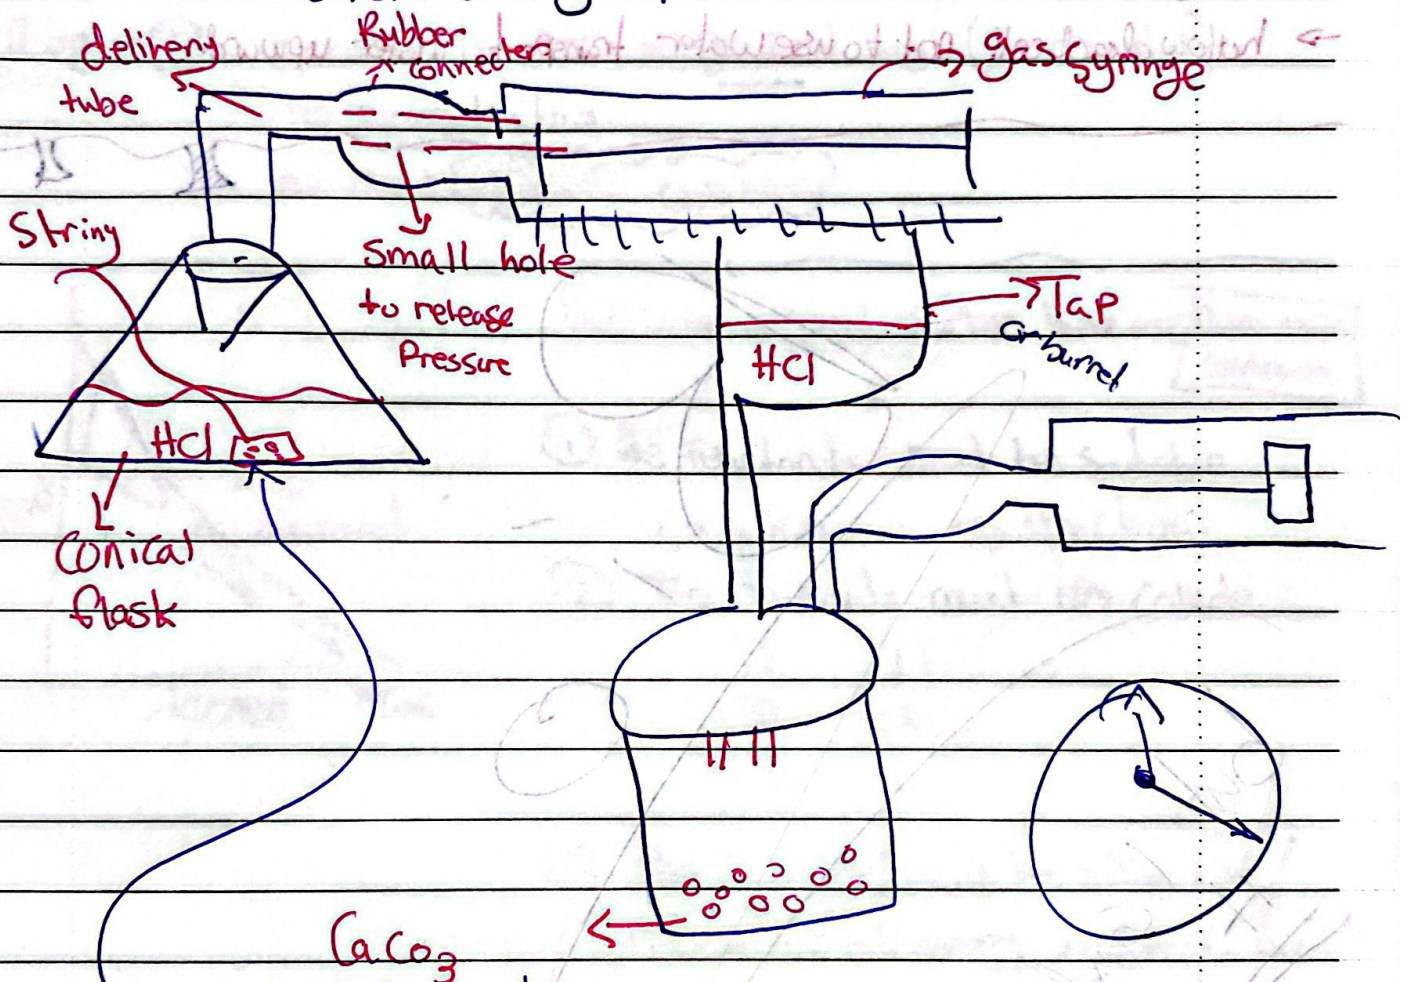 delivery
tube
Rubber
connecters
gas syringe
String
Small hole
to release
Pressure
Tap
or burret
HCl
HCl
Conical
flask
CaCo3